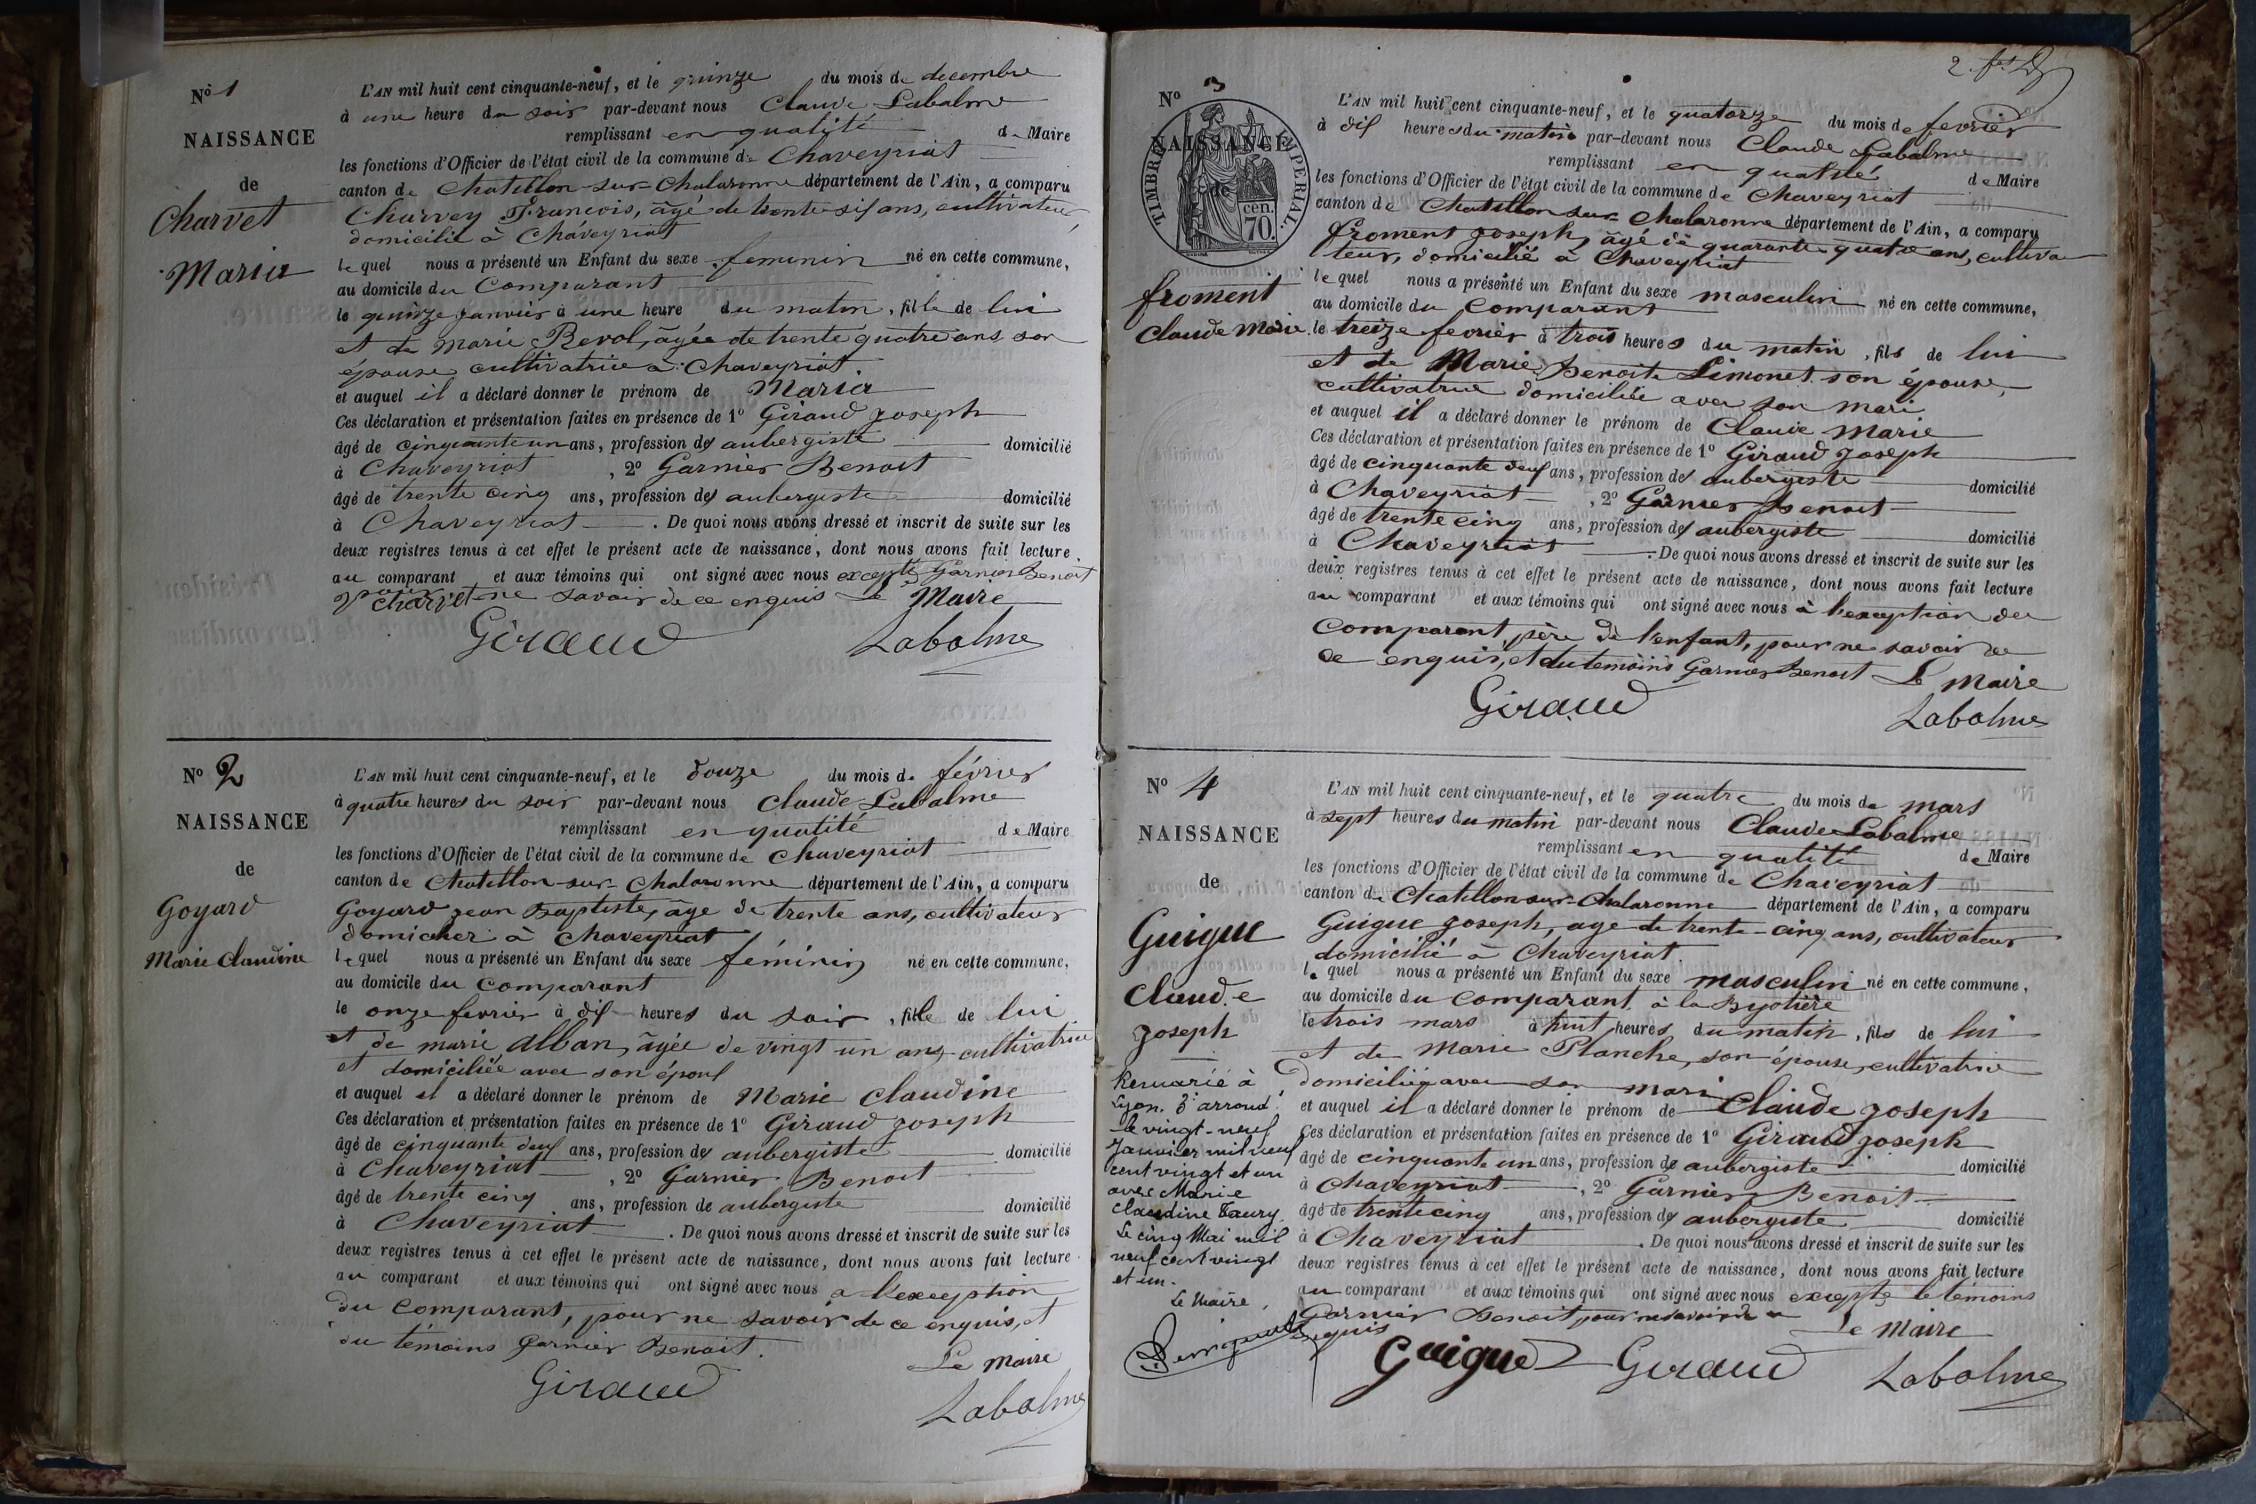 No 1
NAISSANCE
de
Charvet
Maria
L'AN mil huit cent cinquante-neuf, et le quinze du mois de decembre
à une heure du soir par-devant nous Claude Labalme
remplissant en qualité de Maire
les fonctions d'Officier de l'état civil de la commune de Chaveyriat
canton de Chatillon-sur-Chalaronne département de l'Ain, a comparu
Charvey Francois, âgé de trente-sif ans, cultivateur
domicilié à Chaveyriat
lequel nous a présenté un Enfant du sexe feminin né en cette commune,
au domicile du Comparant
le quinze janvier à une heure du matin, fille de lui
et de marie Revol, âgée de trente quatre ans son
épouse cultivatrice à Chaveyriat
et auquel il a déclaré donner le prénom de Maria
Ces déclaration et présentation faites en présence de 1º Giraud joseph
âgé de cinquante un ans, profession de aubergiste domicilié
à Chaveyriat, 2º Garnier Benoit
âgé de trente cinq ans, profession de aubergiste domicilié
à Chaveyriat. De quoi nous avons dressé et inscrit de suite sur les
deux registres tenus à cet effet le présent acte de naissance, dont nous avons fait lecture
au comparant et aux témoins qui ont signé avec nous excepté Garnier Benoit
Charvet ne savoir de ce enquis Le Maire
Giraud Labalme
No 2
NAISSANCE
de
Goyard
Marie Claudine
L'AN mil huit cent cinquante-neuf, et le douze du mois de février
à quatre heures du soir par-devant nous Claude Labalme
remplissant en qualité de Maire
les fonctions d'Officier de l'état civil de la commune de Chaveyriat
canton de Chatillon-sur-Chalaronne département de l'Ain, a comparu
Goyard jean Baptiste, âge de trente ans, cultivateur
domicilier à Chaveyriat
lequel nous a présenté un Enfant du sexe féminin né en cette commune,
au domicile du comparant
le onze fevrier à dif heures du soir, fille de lui
et de marie Alban, âgée de vingt un ans cultivatrice
et domiciliée avec son épouf
et auquel il a déclaré donner le prénom de Marie Claudine
Ces déclaration et présentation faites en présence de 1º Giraud joseph
âgé de cinquante deuf ans, profession de aubergiste domicilié
à Chaveyriat, 2º Garnier Benoit
âgé de trente cinq ans, profession de aubergiste domicilié
à Chaveyriat. De quoi nous avons dressé et inscrit de suite sur les
deux registres tenus à cet effet le présent acte de naissance, dont nous avons fait lecture
au comparant et aux témoins qui ont signé avec nous a l'exception
du comparant, pour ne savoir de ce enquis, et
du témoins garnier Benoit.
Le Maire
Giraud Labalme
No 3
NAISSANCE
de
TIMBRE IMPERIAL
70 cen.
froment
Claude Marie
L'AN mil huit cent cinquante-neuf, et le quatorze du mois de fevrier
à dif heures du matin par-devant nous Claude Labalme
remplissant en qualité de Maire
les fonctions d'Officier de l'état civil de la commune de Chaveyriat
canton de Chatillon sur Chalaronne département de l'Ain, a comparu
froment joseph, âgé de quarante quatre ans, cultiva
teur, domicilié à Chaveyriat
lequel nous a présenté un Enfant du sexe masculin né en cette commune,
au domicile du comparant
le treize fevrier à trois heures du matin, fils de lui
et de Marie Benoite Limonet son épouse
cultivatrice domiciliée avec son mari
et auquel il a déclaré donner le prénom de Claude Marie
Ces déclaration et présentation faites en présence de 1º Giraud joseph
âgé de cinquante deuf ans, profession de aubergiste domicilié
à Chaveyriat, 2º Garnier Benoit
âgé de trente cinq ans, profession de aubergiste domicilié
à Chaveyriat. De quoi nous avons dressé et inscrit de suite sur les
deux registres tenus à cet effet le présent acte de naissance, dont nous avons fait lecture
au comparant et aux témoins qui ont signé avec nous à l'exception du
comparant, père de l'enfant, pour ne savoir de
ce enquis, et du temoins Garnier Benoit Le Maire
Giraud Labalme
No 4
NAISSANCE
de
Guigue
Claude
joseph
Remarié à
Lyon. 3e arrond.
le vingt-neuf
Janvier mil neuf
cent vingt et un
avec Marie
Claudine Taury.
Le cinq Mai mil
neuf cent vingt
et un.
Le Maire,
L'AN mil huit cent cinquante-neuf, et le quatre du mois de mars
à sept heures du matin par-devant nous Claude Labalme
remplissant en qualité de Maire
les fonctions d'Officier de l'état civil de la commune de Chaveyriat
canton de Chatillon sur Chalaronne département de l'Ain, a comparu
Guigue joseph, age de trente-cinq ans, cultivateur
domicilié à Chaveyriat.
lequel nous a présenté un Enfant du sexe masculin né en cette commune,
au domicile du comparant à la
le trois mars à huit heures du matin, fils de lui
et de Marie Planche, son épouse, cultivatrice
domiciliée avec son mari
et auquel il a déclaré donner le prénom de Claude joseph
Ces déclaration et présentation faites en présence de 1º Giraud joseph
âgé de cinquante un ans, profession de aubergiste domicilié
à Chaveyriat, 2º Garnier Benoit
âgé de trente cinq ans, profession de aubergiste domicilié
à Chaveyriat. De quoi nous avons dressé et inscrit de suite sur les
deux registres tenus à cet effet le présent acte de naissance, dont nous avons fait lecture
au comparant et aux témoins qui ont signé avec nous excepté le témoins
Garnier Benoit pour ne savoir de ce
enquis Le Maire
Guigue Giraud Labalme